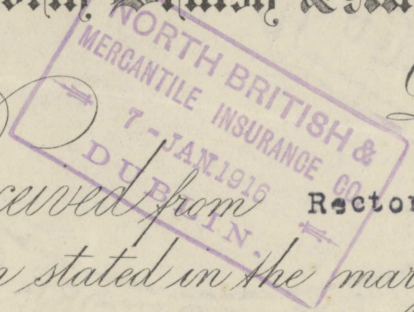 NORTH BRITISH &
MERCANTILE INSURANCE CO
7-JAN.1916
DUBLIN.
from Rector
stated in the